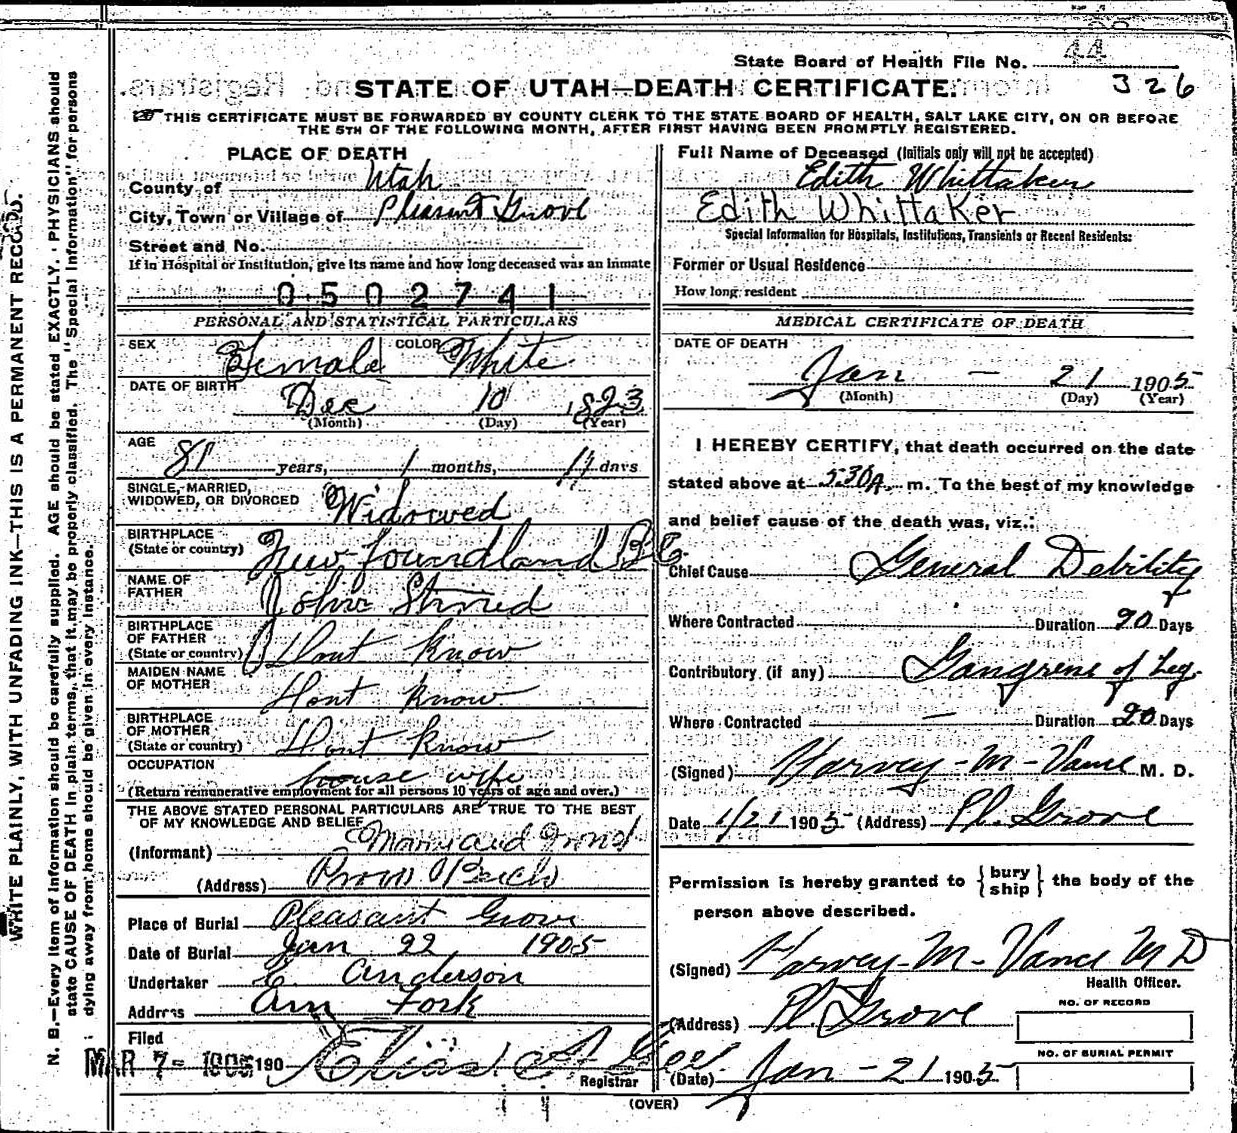 State Board of Health File No. 44
326
STATE OF UTAH—DEATH CERTIFICATE.
THIS CERTIFICATE MUST BE FORWARDED BY COUNTY CLERK TO THE STATE BOARD OF HEALTH, SALT LAKE CITY, ON OR BEFORE
THE 5TH OF THE FOLLOWING MONTH, AFTER FIRST HAVING BEEN PROMPTLY REGISTERED.
PLACE OF DEATH
County of Utah
City, Town or Village of Pleasant Grove
Street and No.
If in Hospital or Institution, give its name and how long deceased was an inmate
0502741
PERSONAL AND STATISTICAL PARTICULARS
SEX Female COLOR White
DATE OF BIRTH
Dec 10 1823
(Month) (Day) (Year)
AGE
81 years, 1 months, 11 days
SINGLE, MARRIED,
WIDOWED, OR DIVORCED Widowed
BIRTHPLACE
(State or country) New foundland
NAME OF
FATHER John
BIRTHPLACE
OF FATHER
(State or country) Dont know
MAIDEN NAME
OF MOTHER Dont know
BIRTHPLACE
OF MOTHER
(State or country) Dont know
OCCUPATION house wife
(Return remunerative employment for all persons 10 years of age and over.)
THE ABOVE STATED PERSONAL PARTICULARS ARE TRUE TO THE BEST
OF MY KNOWLEDGE AND BELIEF
(Informant)
(Address) Provo Bench
Place of Burial Pleasant Grove
Date of Burial Jan 22 1905
Undertaker E Anderson
Address Am Fork
Filed
MAR 7- 1905 190 Elias A Gee
Registrar
Full Name of Deceased (Initials only will not be accepted)
Edith Whittaker
Edith Whittaker
Special Information for Hospitals, Institutions, Transients or Recent Residents:
Former or Usual Residence
How long resident
MEDICAL CERTIFICATE OF DEATH
DATE OF DEATH
Jan — 21 1905
(Month) (Day) (Year)
I HEREBY CERTIFY, that death occurred on the date
stated above at 5:30A. m. To the best of my knowledge
and belief cause of the death was, viz.:
Chief Cause General Debility
Where Contracted Duration 90 Days
Contributory (if any) Gangrene of Leg.
Where Contracted — Duration 20 Days
(Signed) Harvey-M-Vance M. D.
Date 1/21 1905 (Address) Pl. Grove
Permission is hereby granted to {bury
ship} the body of the
person above described.
(Signed) Harvey-M-Vance M D
Health Officer.
(Address) Pl Grove
NO. OF RECORD
NO. OF BURIAL PERMIT
(Date) Jan - 21 1905
(OVER)
WRITE PLAINLY, WITH UNFADING INK—THIS IS A PERMANENT RECORD.
N. B.—Every item of information should be carefully supplied. AGE should be stated EXACTLY. PHYSICIANS should
state CAUSE OF DEATH in plain terms, that it may be properly classified. The "Special Information" for persons
dying away from home should be given in every instance.